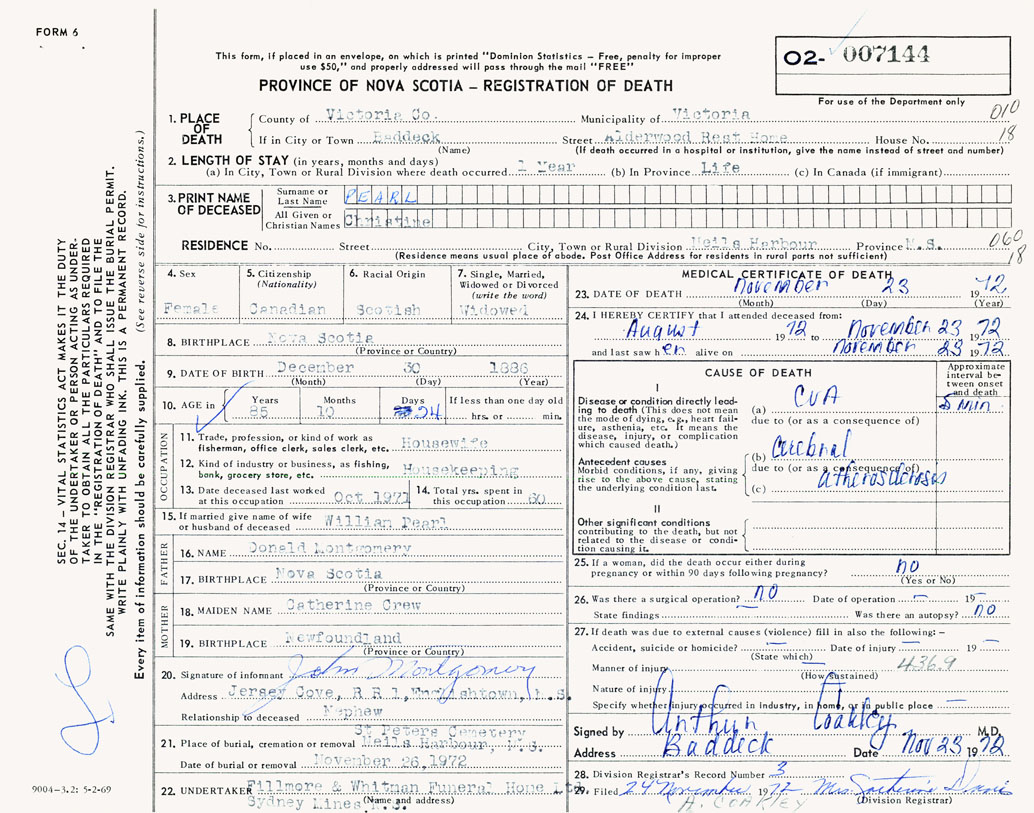 FORM 6
This form, if placed in an envelope, on which is printed "Dominion Statistics – Free, penalty for improper
use $50," and properly addressed will pass through the mail "FREE"
O2- 007144
PROVINCE OF NOVA SCOTIA – REGISTRATION OF DEATH
For use of the Department only
SEC. 14 – VITAL STATISTICS ACT MAKES IT THE DUTY
OF THE UNDERTAKER OR PERSON ACTING AS UNDER-
TAKER TO OBTAIN ALL THE PARTICULARS REQUIRED
IN THE "REGISTRATION OF DEATH" AND TO FILE THE
SAME WITH THE DIVISION REGISTRAR WHO SHALL ISSUE THE BURIAL PERMIT.
WRITE PLAINLY WITH UNFADING INK. THIS IS A PERMANENT RECORD.
Every item of information should be carefully supplied. (See reverse side for instructions.)
1. PLACE OF DEATH
County of Victoria Co. Municipality of Victoria 010
If in City or Town Baddeck Street Alderwood Rest Home House No. 18
(Name) (If death occurred in a hospital or institution, give the name instead of street and number)
2. LENGTH OF STAY (in years, months and days)
(a) In City, Town or Rural Division where death occurred 1 Year (b) In Province Life (c) In Canada (if immigrant)
3. PRINT NAME OF DECEASED
Surname or Last Name PEARL
All Given or Christian Names Christine
RESIDENCE No. Street City, Town or Rural Division Neils Harbour Province N.S. 060
(Residence means usual place of abode. Post Office Address for residents in rural parts not sufficient) 18
4. Sex
Female
5. Citizenship
(Nationality)
Canadian
6. Racial Origin
Scotish
7. Single, Married,
Widowed or Divorced
(write the word)
Widowed
8. BIRTHPLACE Nova Scotia
(Province or Country)
9. DATE OF BIRTH December 30 1886
(Month) (Day) (Year)
10. AGE in Years Months Days If less than one day old
85 10 24 hrs. or min.
OCCUPATION
11. Trade, profession, or kind of work as
fisherman, office clerk, sales clerk, etc. Housewife
12. Kind of industry or business, as fishing,
bank, grocery store, etc. Housekeeping
13. Date deceased last worked
at this occupation Oct 1971
14. Total yrs. spent in
this occupation 60
15. If married give name of wife
or husband of deceased Willian Pearl
FATHER
16. NAME Donald Montgomery
17. BIRTHPLACE Nova Scotia
(Province or Country)
MOTHER
18. MAIDEN NAME Catherine Crew
19. BIRTHPLACE Newfoundland
(Province or Country)
20. Signature of informant John Montgomery
Address Jersey Cove, R R 1, Englishtown, N.S.
Relationship to deceased Nephew
St Peters Cemetery
21. Place of burial, cremation or removal Neils Harbour, N.S.
Date of burial or removal November 26, 1972
22. UNDERTAKER Fillmore & Whitman Funeral Home Ltd.
Sydney Mines N.S.
(Name and address)
9004-3.2: 5-2-69
MEDICAL CERTIFICATE OF DEATH
23. DATE OF DEATH November 23 1972
(Month) (Day) (Year)
24. I HEREBY CERTIFY that I attended deceased from:
August 1972 to November 23 1972
and last saw her alive on November 23 1972
CAUSE OF DEATH
Approximate
interval be-
tween onset
and death
I
Disease or condition directly lead-
ing to death (This does not mean
the mode of dying, e.g., heart fail-
ure, asthenia, etc. It means the
disease, injury, or complication
which caused death.)
(a) CVA 5 min
due to (or as a consequence of)
Antecedent causes
Morbid conditions, if any, giving
rise to the above cause, stating
the underlying condition last.
(b) Cerebral
due to (or as a consequence of)
(c) atherosclerosis
II
Other significant conditions
contributing to the death, but not
related to the disease or condi-
tion causing it.
25. If a woman, did the death occur either during
pregnancy or within 90 days following pregnancy? no
(Yes or No)
26. Was there a surgical operation? no Date of operation – 19 –
State findings – Was there an autopsy? no
27. If death was due to external causes (violence) fill in also the following: –
Accident, suicide or homicide? – Date of injury – 19 –
(State which)
Manner of injury 436.9
(How sustained)
Nature of injury
Specify whether injury occurred in industry, in home, or in public place –
Signed by Arthur Coakley M.D.
Address Baddeck Date Nov 23 1972
28. Division Registrar's Record Number 3
29. Filed 24 November 1972 Mrs. Davis
(Division Registrar)
A. COAKLEY